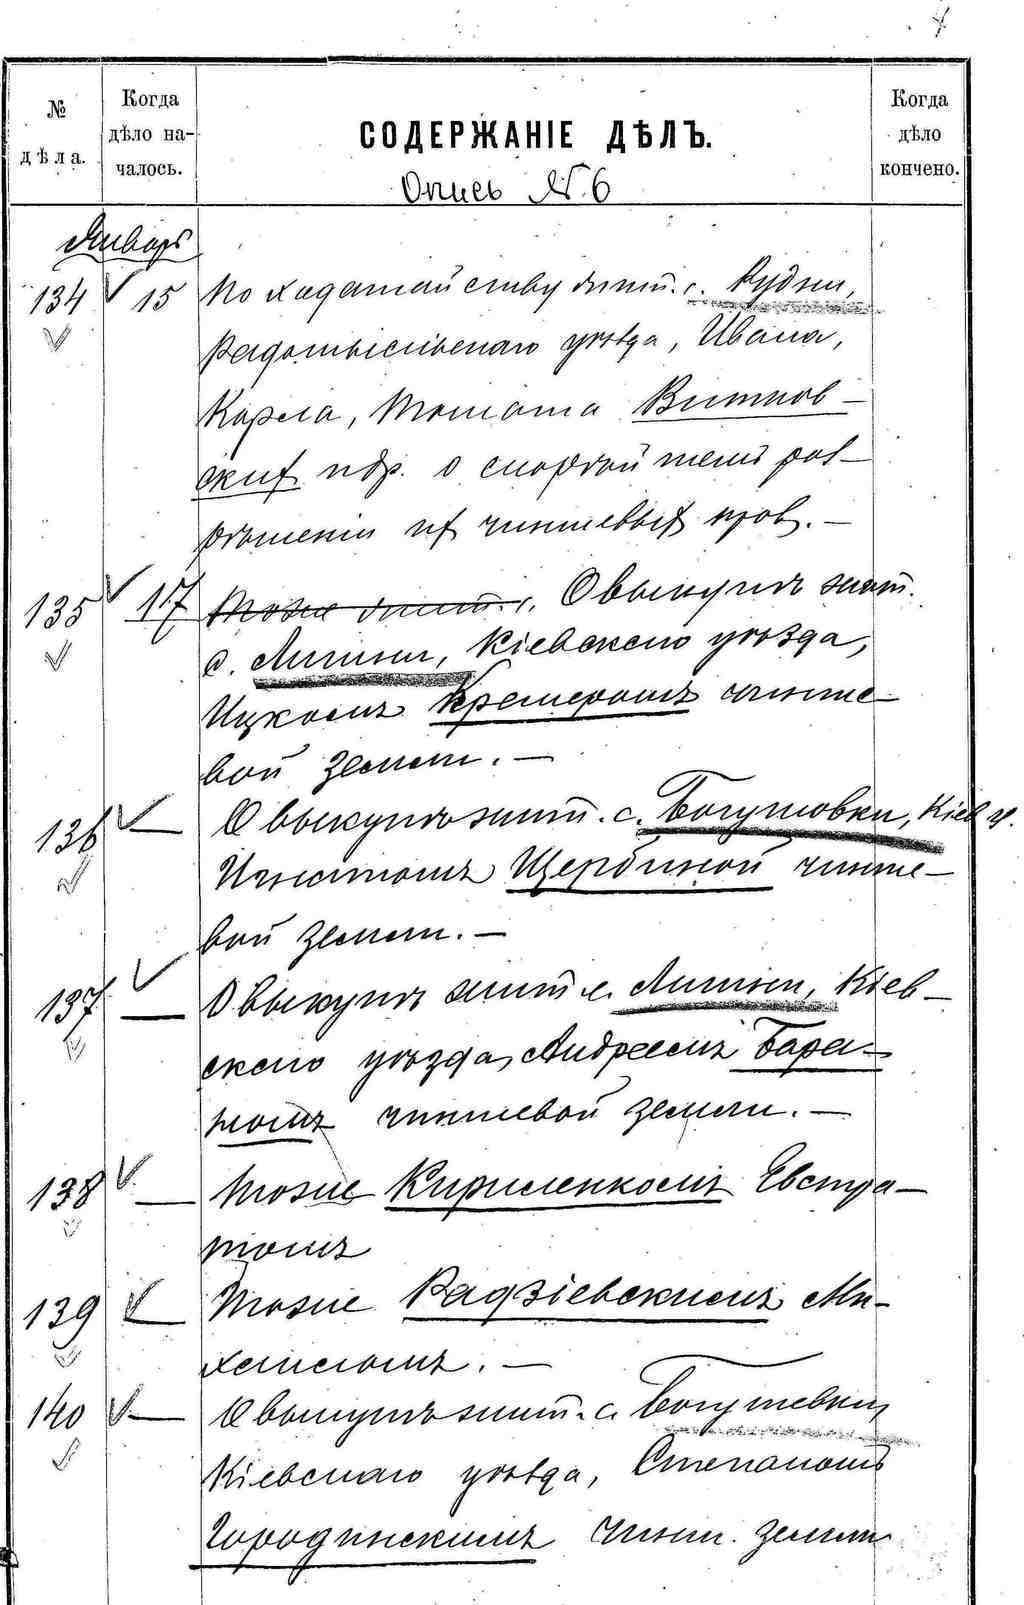 № дѣла.
Когда дѣло на-чалось.
СОДЕРЖАНІЕ ДѢЛЪ.
Когда дѣло кончено.
Опись № 6
Январь
134 15 По ходатайству жит. с. Рудни,
Радомысльскаго уѣзда, Ивана,
Карла, Томаша Витков-
ских и др. о скорѣйшемъ раз-
рѣшеніи их чиншевых прав. —
135 17 Тоже жит. с. О выкупѣ жит.
с. Литки, Кіевскаго уѣзда,
Ицкомъ Кремеромъ чинше-
вой земли. —
136 — О выкупѣ жит. с. Богушовки, Кіев. у.
Игнатомъ Щербиной чинше-
вой земли. —
137 — О выкупѣ жит. с. Литки, Кіев-
скаго уѣзда, Андреемъ Бара-
номъ чиншевой земли. —
138 — Тоже Кириленкомъ Евстра-
томъ
139 — Тоже Радзіевскимъ Ми-
хаиломъ. —
140 — О выкупѣ жит. с. Богушевки,
Кіевскаго уѣзда, Степаномъ
Городинскимъ чинш. земли